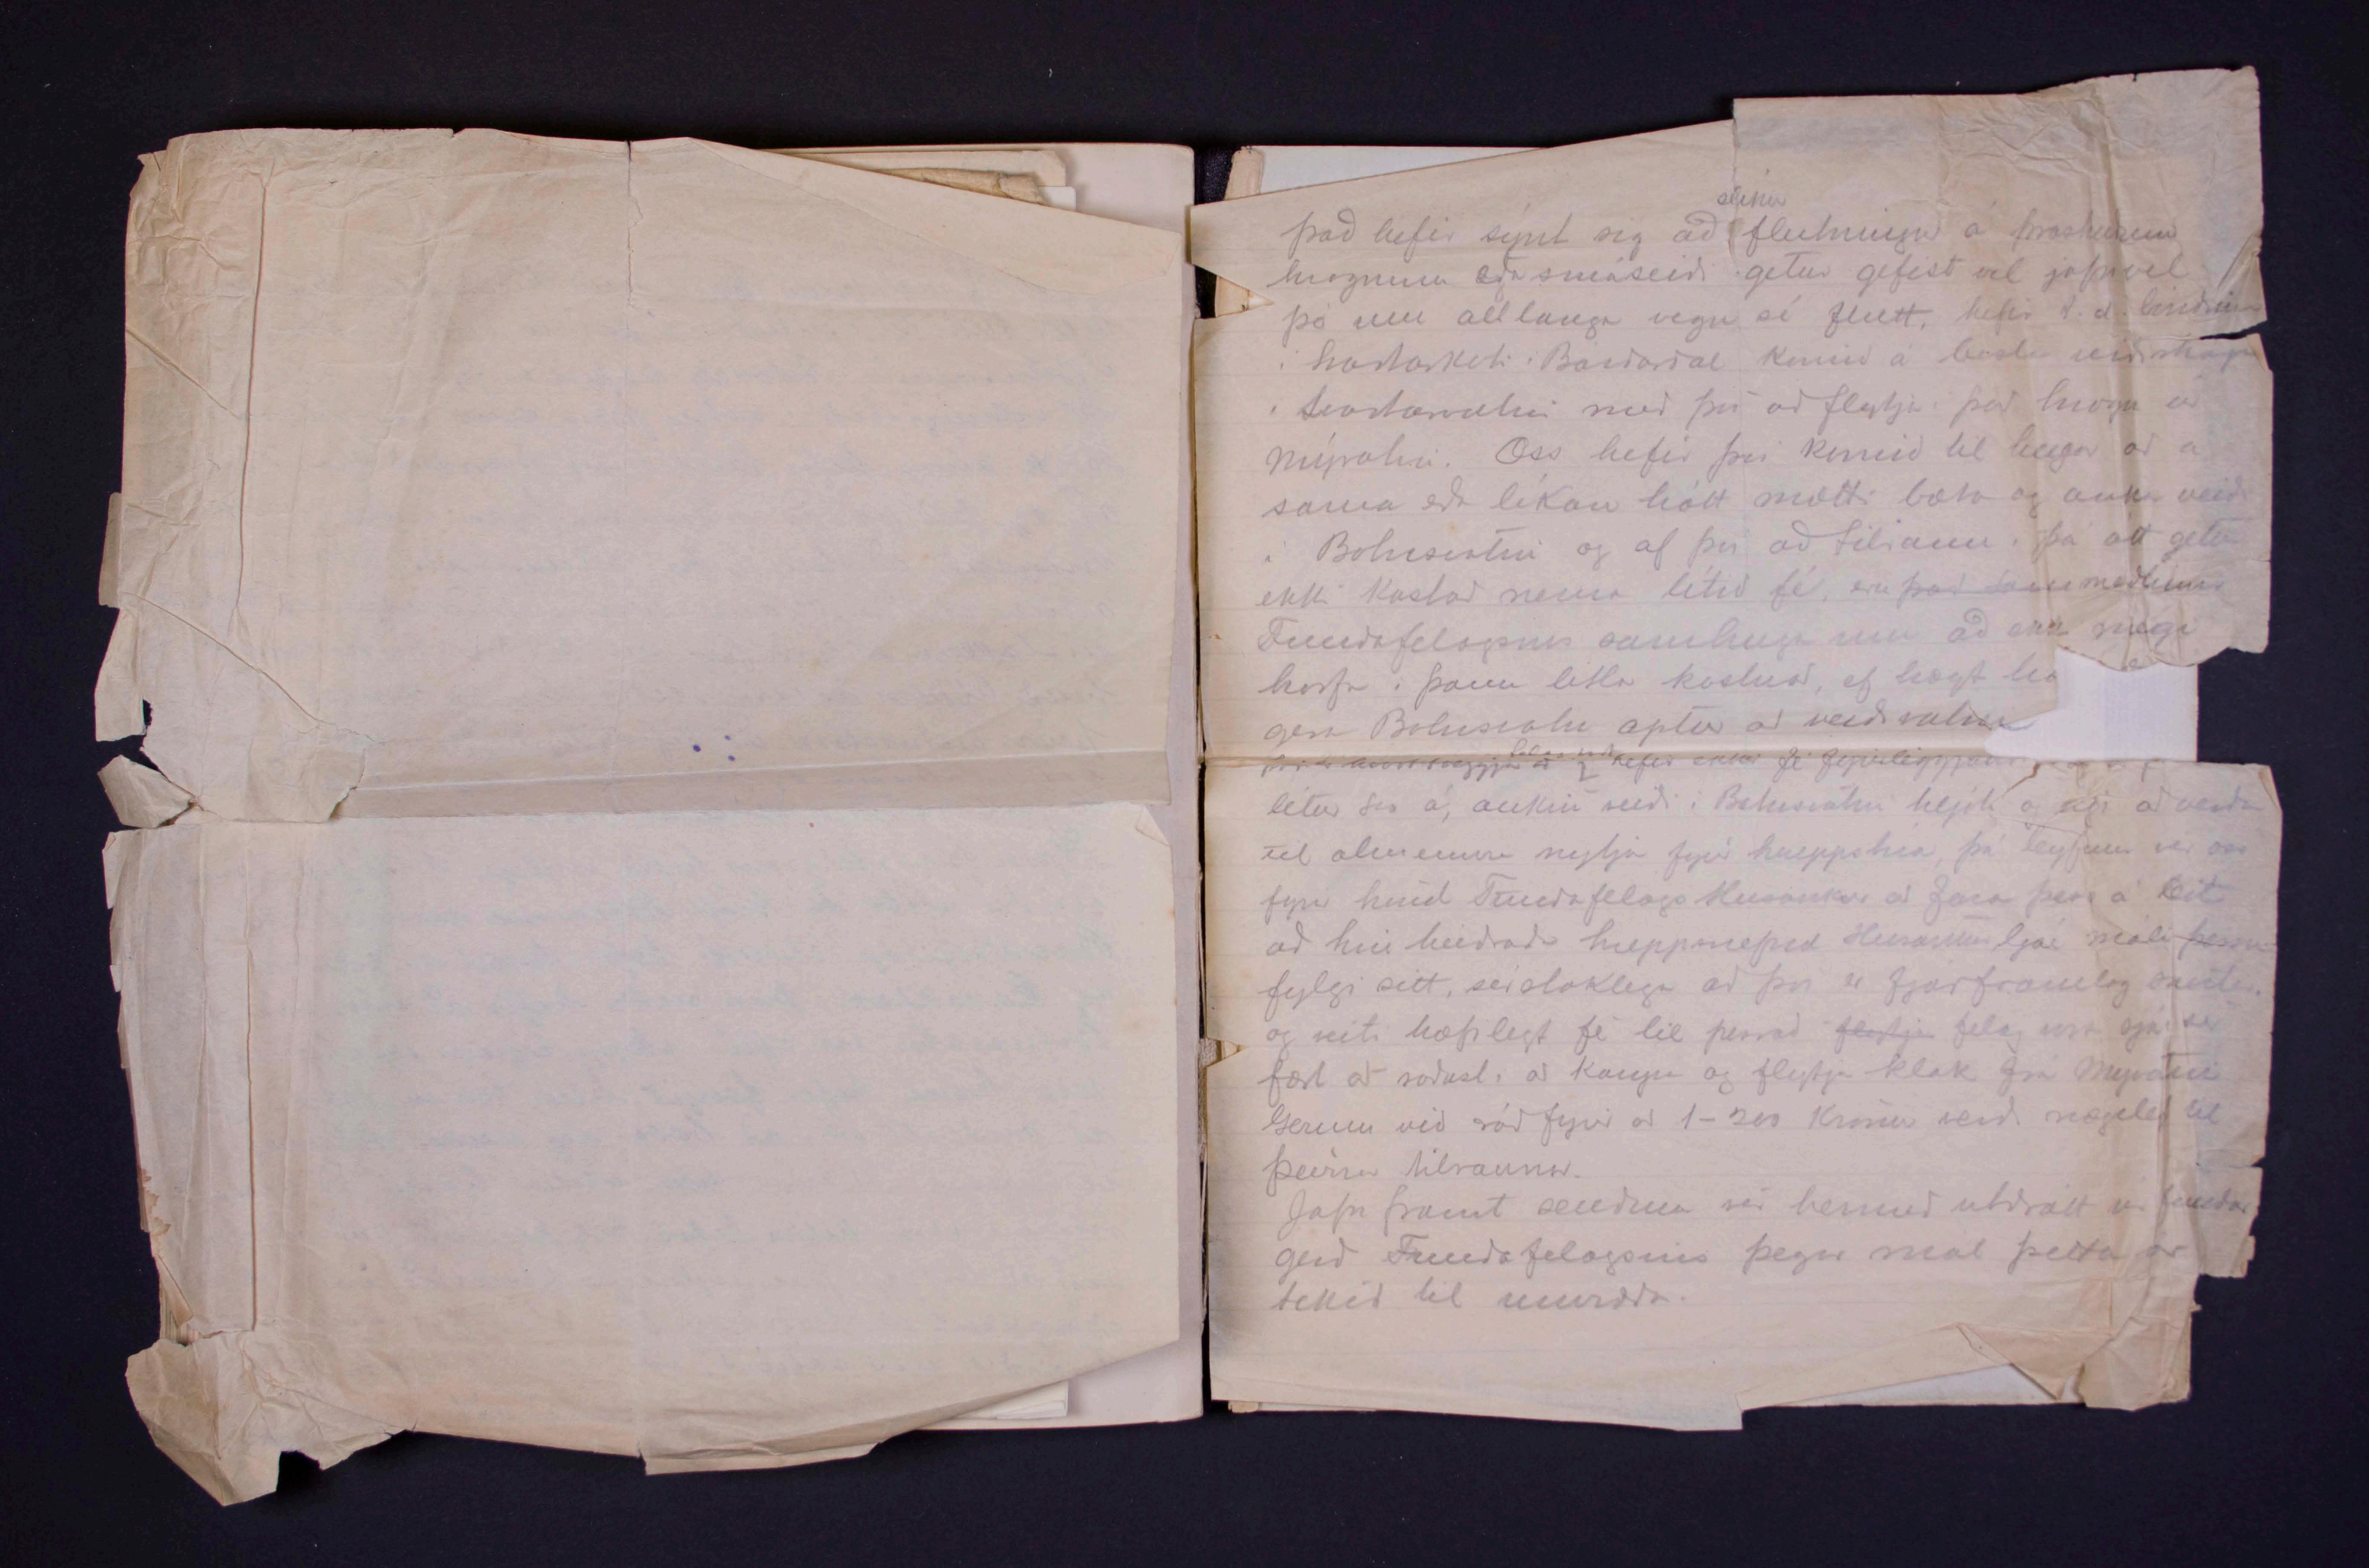 slíkur
það hefir sýnt sig að flutningur á þroskuðum
hrognum eða smáseiði getur gefist vel jafnvel
þó um alllanga vegu sé flutt, hefir t.d. bóndinn
í Svartárkoti í Bárðardal komið á bestu veiði
í Svartárvatni með því að flytja í það hrogn úr
Mývatni. Oss hefir því komið til hugar að á
sama eða líkan hátt mætti bæta og auka veiði
í Botnsvatni og af því að tilraun í þá átt getur
ekki kostað nema lítið fé, eru það meðlimir
Fundafelagsins samhuga um að ekki megi
horfa í þann litla kostnað, ef hægt
gera Botnsvatn aptur að veiðivatni
hefir ekki fé fyrirliggjandi
litur svo á, aukin veiði í Botnsvatni hljóti og eigi að verða
til almennra nytja fyrir hreppsbúa, þá leyfum vér oss
fyrir hönd Fundafelags Húsavíkur að fara þess á leit
að hin heiðraða hreppsnefnd Húsavíkur ljái máli þessu
fylgi sitt, sérstaklega að því er fjárframlög snertir
og veiti hæfilegt fé til þess að flytja felag vort sjái sér
fært að ráðast í að kaupa og flytja klak frá Mývatni
Gerum við ráð fyrir að 1-200 Krónur verði nægileg til
þeirra tilrauna.
Jafn framt sendum vér hermeð utdrátt úr fundar
gerð Fundafelagsins þegar mál þetta var
tekið til umræðu.